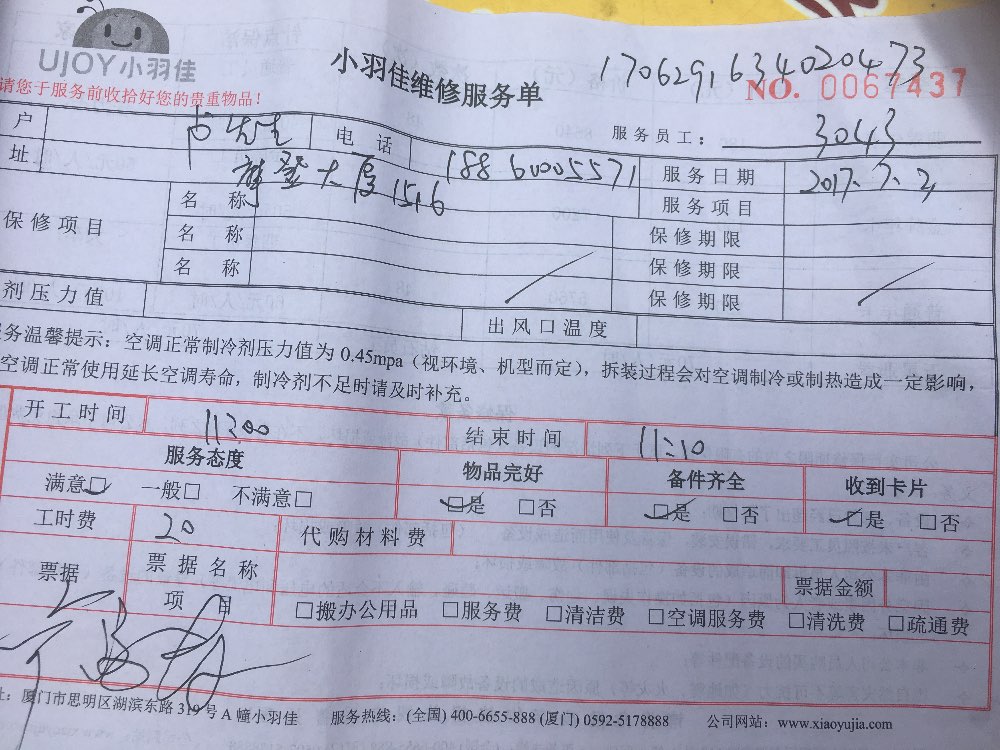 UJOY小羽佳
小羽佳维修服务单
170629163402 0473
NO. 0067437
请您于服务前收拾好您的贵重物品！
服务员工： 3043
户 先生 电 话 18860005571
址 登大厦1516 服务日期 2017.7.2
服务项目
保修项目 名 称 保修期限
名 称 保修期限
名 称 保修期限
剂压力值 出风口温度
务温馨提示：空调正常制冷剂压力值为 0.45mpa（视环境、机型而定），拆装过程会对空调制冷或制热造成一定影响，
空调正常使用延长空调寿命，制冷剂不足时请及时补充。
开工时间 11:00 结束时间 11:10
服务态度 物品完好 备件齐全 收到卡片
满意□ 一般□ 不满意□ □是 □否 □是 □否 □是 □否
工时费 20 代购材料费
票据 票据名称 票据金额
项 目 □搬办公用品 □服务费 □清洁费 □空调服务费 □清洗费 □疏通费
址：厦门市思明区湖滨东路 319 号 A 幢小羽佳 服务热线：(全国) 400-6655-888 (厦门) 0592-5178888 公司网站：www.xiaoyujia.com